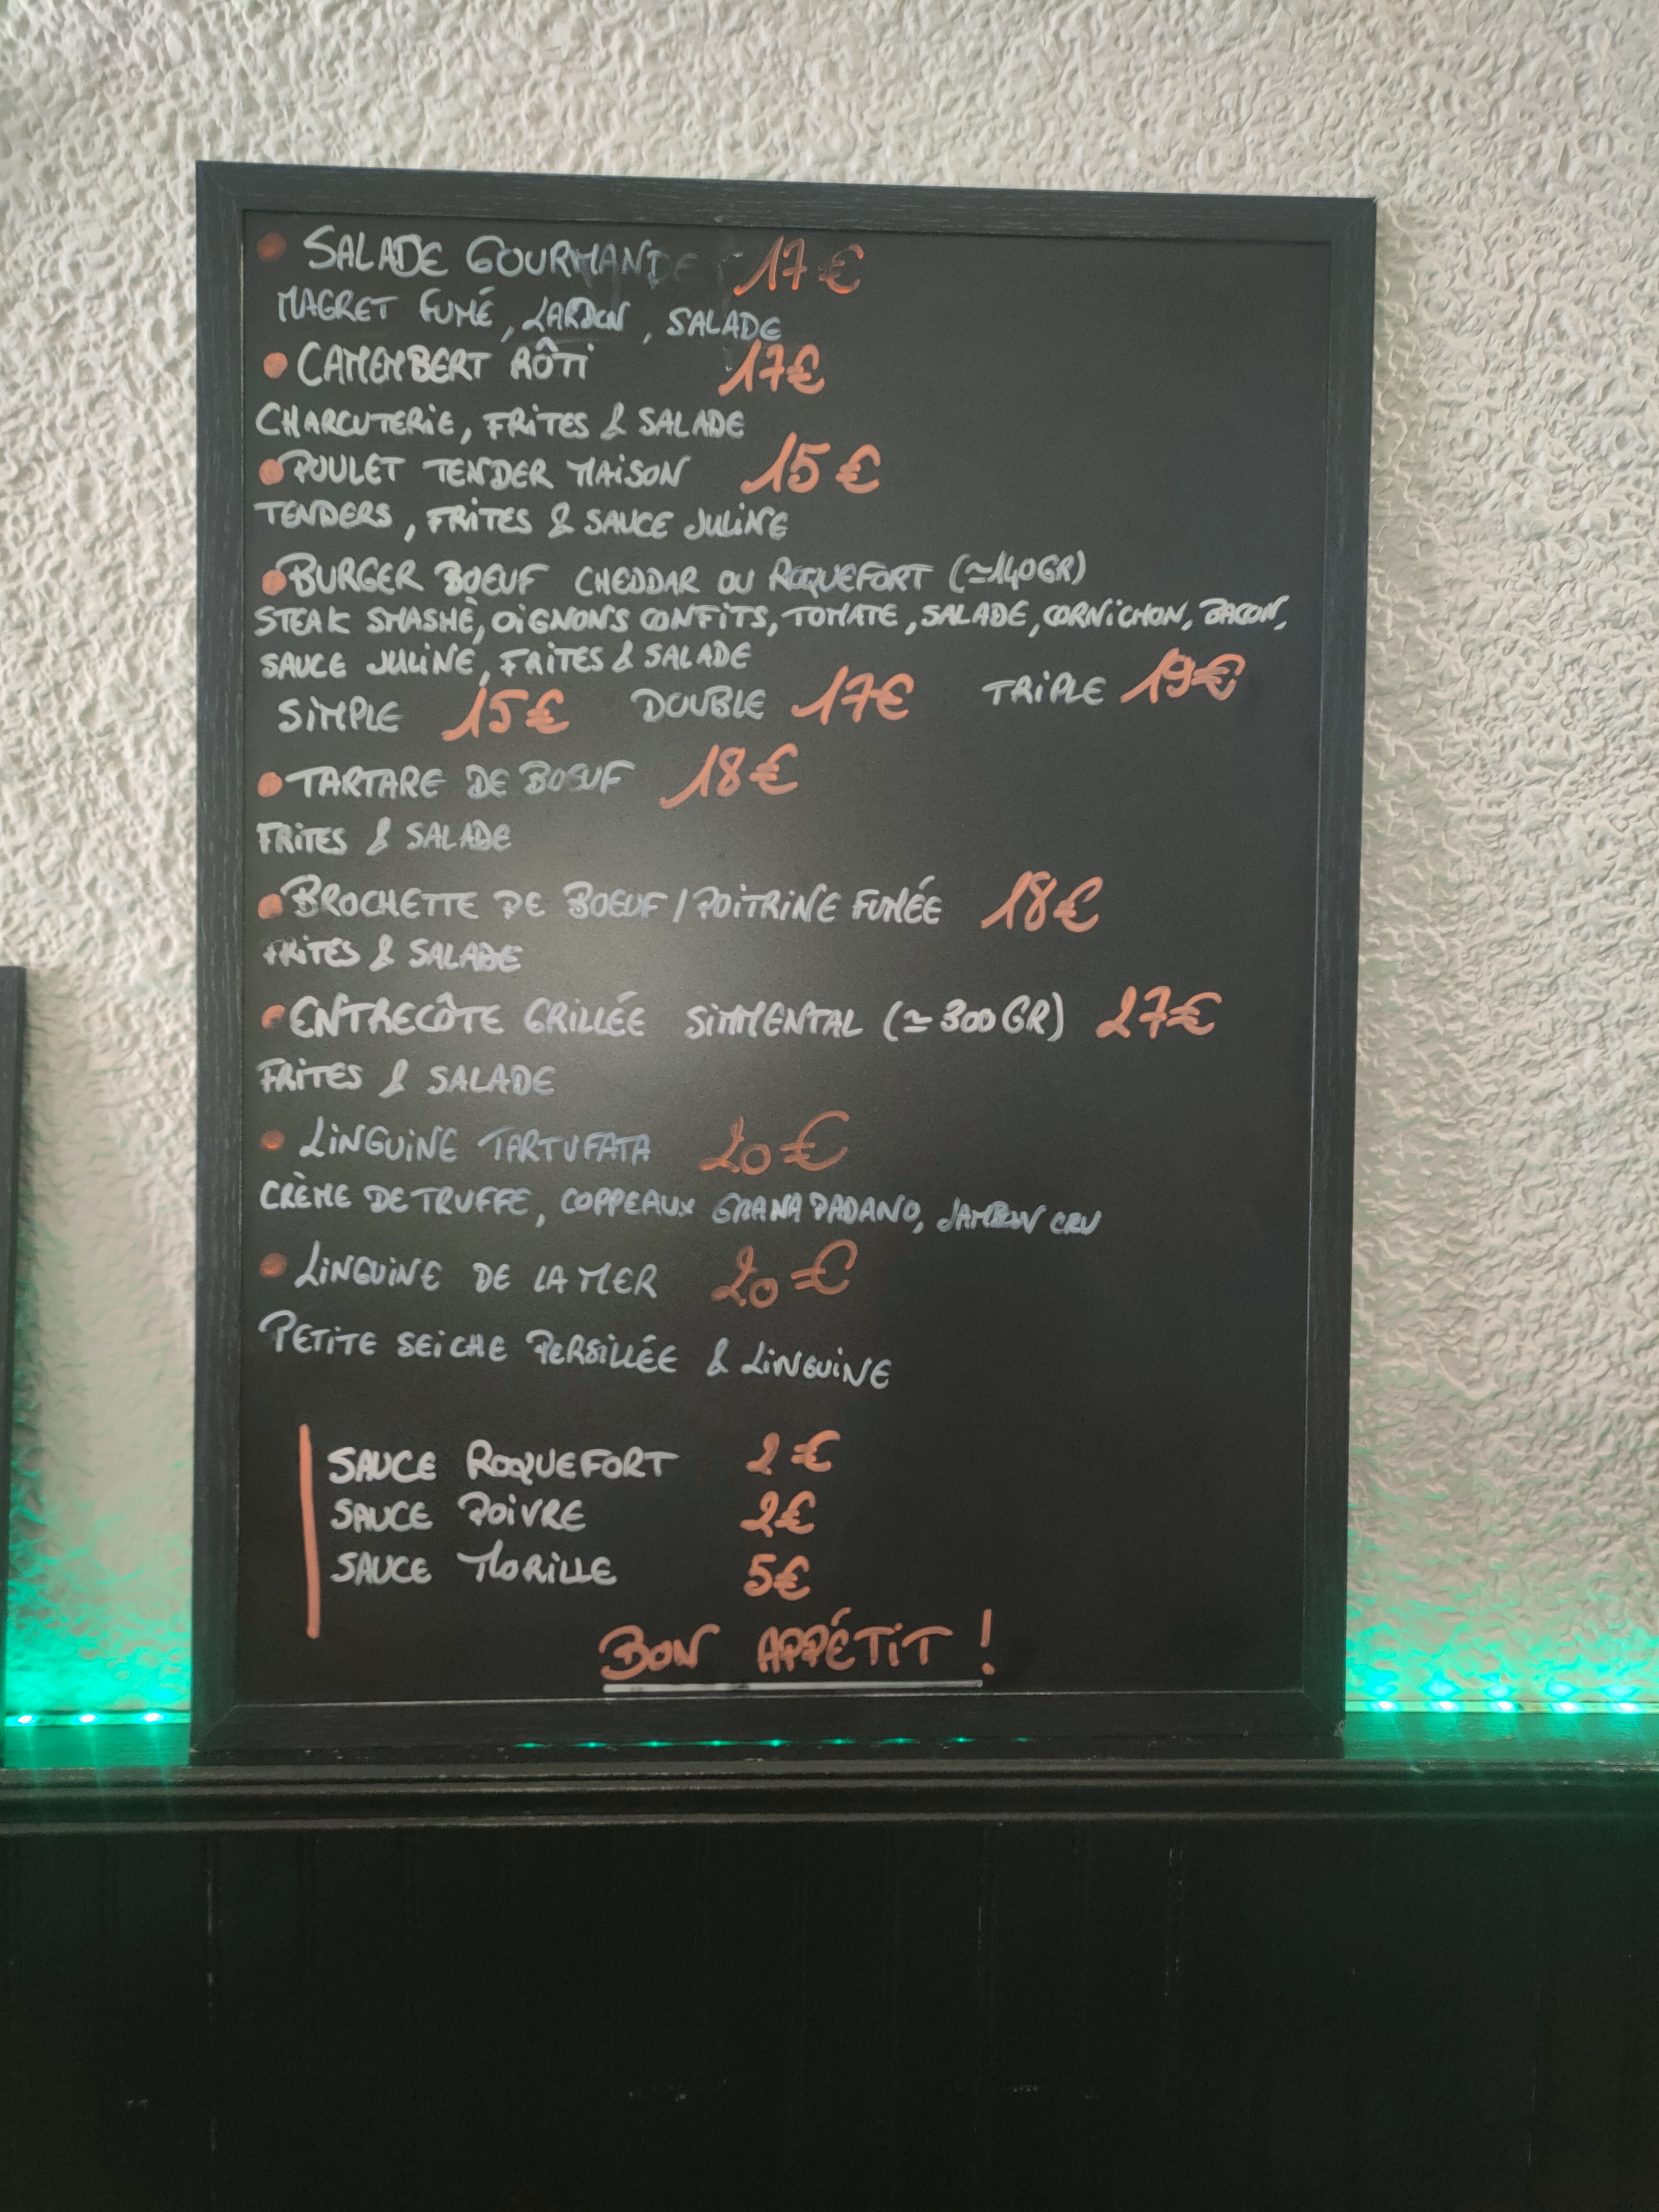 SALADE GOURMANDE 17€
MAGRET FUMÉ, LARDON, SALADE
CAMEMBERT RÔTI 17€
CHARCUTERIE, FRITES & SALADE
POULET TENDER MAISON 15€
TENDERS, FRITES & SAUCE JULINE
BURGER BOEUF CHEDDAR OU ROQUEFORT (≃140GR)
STEAK SMASHÉ, OIGNONS CONFITS, TOMATE, SALADE, CORNICHON, BACON,
SAUCE JULINE, FRITES & SALADE
SIMPLE 15€ DOUBLE 17€ TRIPLE 19€
TARTARE DE BOEUF 18€
FRITES & SALADE
BROCHETTE DE BOEUF / POITRINE FUMÉE 18€
FRITES & SALADE
ENTRECÔTE GRILLÉE SIMMENTAL (≃300GR) 27€
FRITES & SALADE
LINGUINE TARTUFATA 20€
CRÈME DE TRUFFE, COPPEAUX GRANA PADANO, JAMBON CRU
LINGUINE DE LA MER 20€
PETITE SEICHE PERSILLÉE & LINGUINE
SAUCE ROQUEFORT 2€
SAUCE POIVRE 2€
SAUCE MORILLE 5€
BON APPÉTIT !